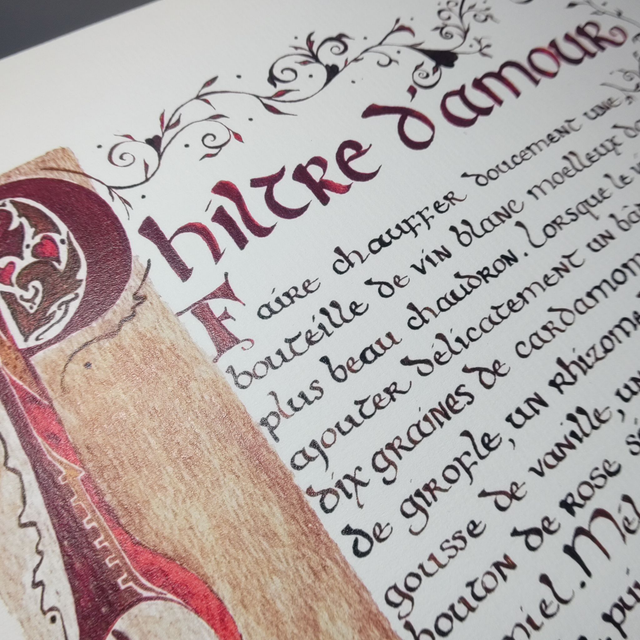 Philtre d'amour
Faire chauffer doucement une
bouteille de vin blanc moelleux d
plus beau chaudron. Lorsque le
ajouter délicatement un
dix graines de cardamom
de girofle, un rhizome
gousse de vanille, un
bouton de rose
miel. Mél